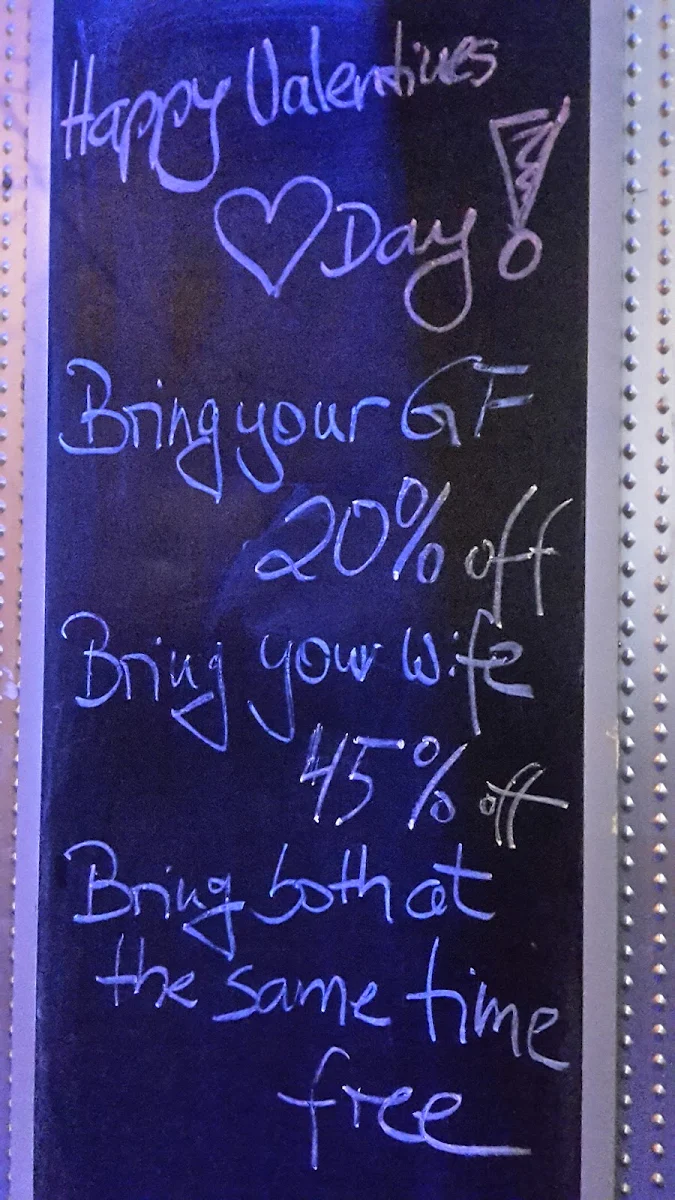 Happy Valentines
♡ Day!
Bring your GF
20% off
Bring your wife
45% off
Bring both at
the same time
free